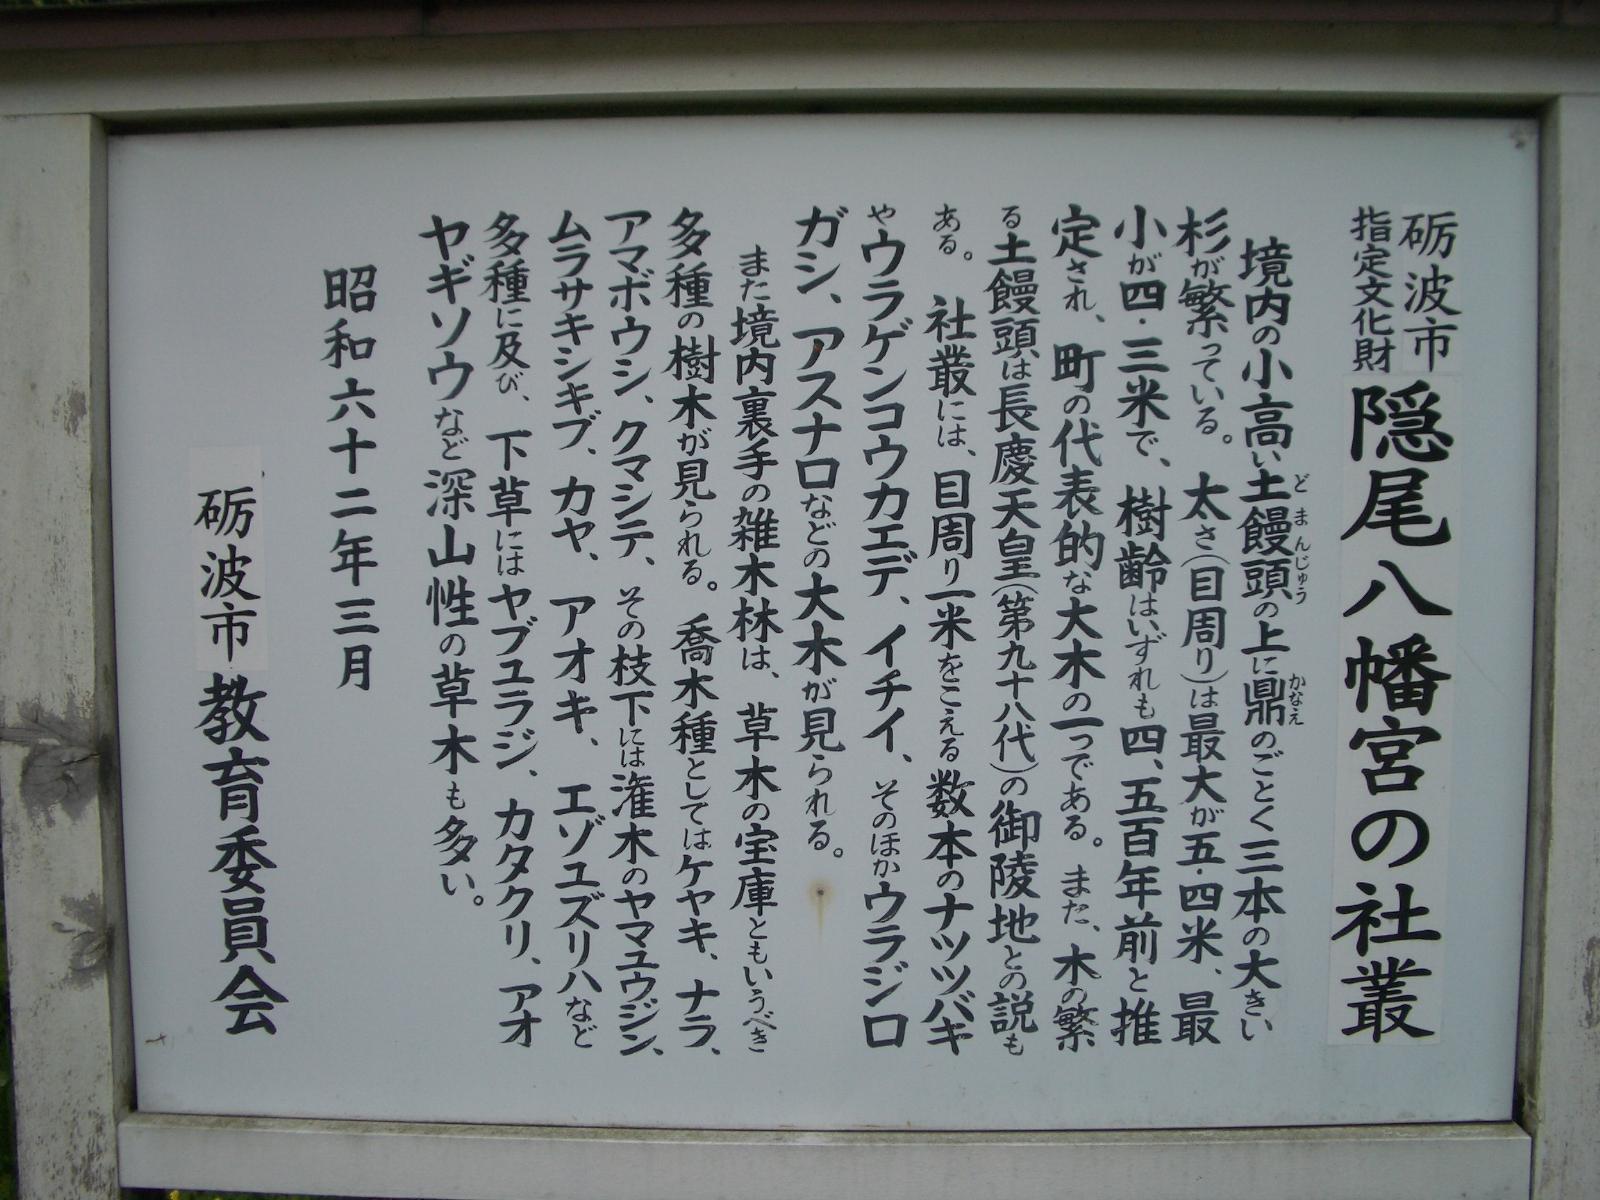 砺波市
指定文化財
隠尾八幡宮の社叢
境内の小高い土饅頭の上に鼎のごとく三本の大きい
どまんじゅう
かなえ
杉が繁っている。太さ(目周り)は最大が五・四米、最
小が四・三米で、樹齢はいずれも四、五百年前と推
定され、町の代表的な大木の一つである。また、木の繁
る土饅頭は長慶天皇(第九十八代)の御陵地との説も
ある。社叢には、目周り一米をこえる数本のナツツバキ
やウラゲンコウカエデ、イチイ、そのほかウラジロ
ガシ、アスナロなどの大木が見られる。
また境内裏手の雑木林は、草木の宝庫ともいうべき
多種の樹木が見られる。喬木種としてはケヤキ、ナラ、
アマボウシ、クマシテ、その枝下には潅木のヤマユウジン、
ムラサキシキブ、カヤ、アオキ、エゾユズリハなど
多種に及び、下草にはヤブユラジ、カタクリ、アオ
ヤギソウなど深山性の草木も多い。
昭和六十二年三月
砺波市教育委員会